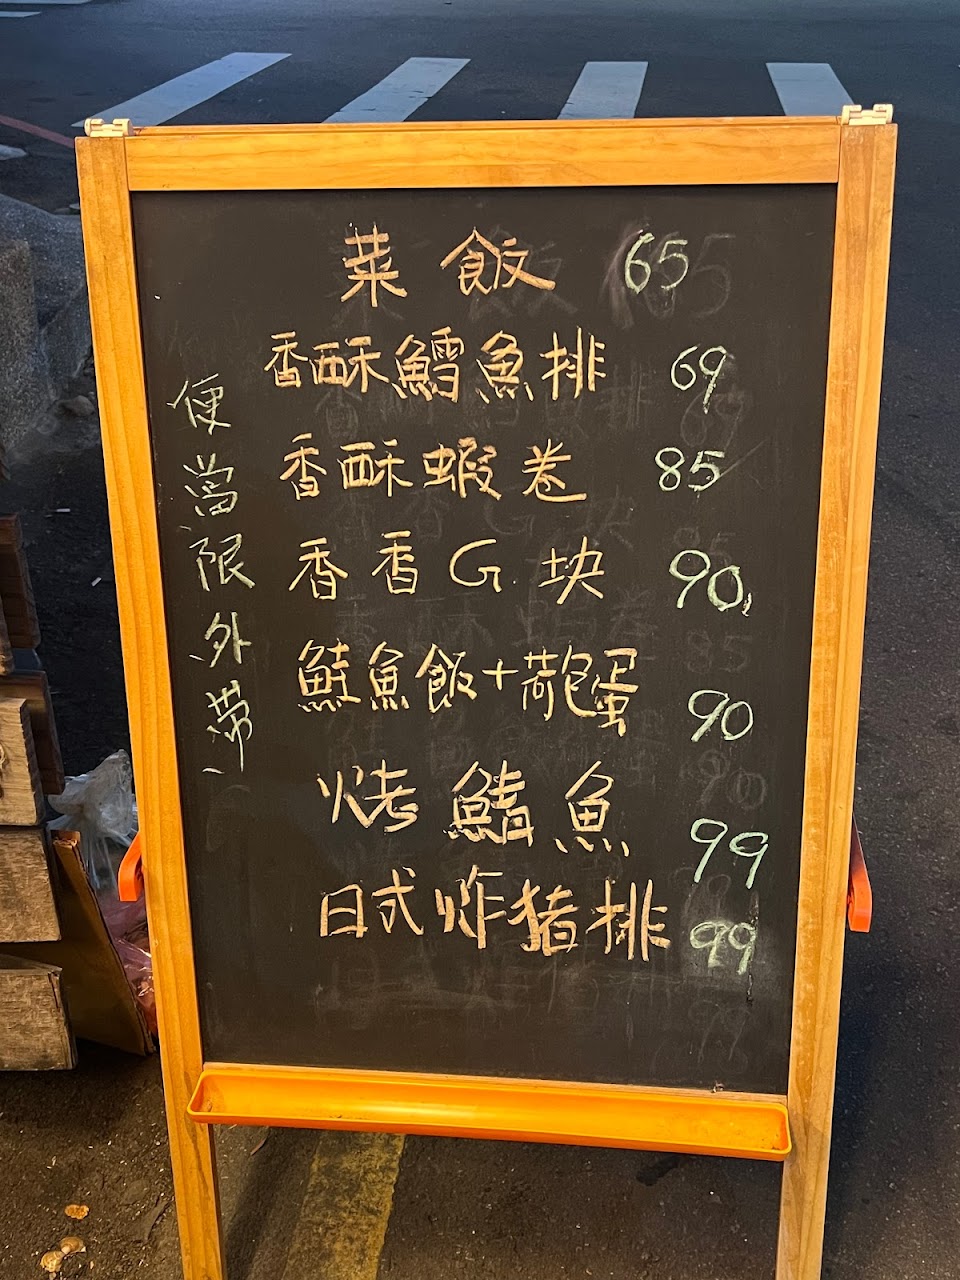 菜飯 65
香酥鱈魚排 69
香酥蝦卷 85
香香G块 90
鮭魚飯+荷包蛋 90
烤鯖魚 99
日式炸豬排 99
便當限外帶